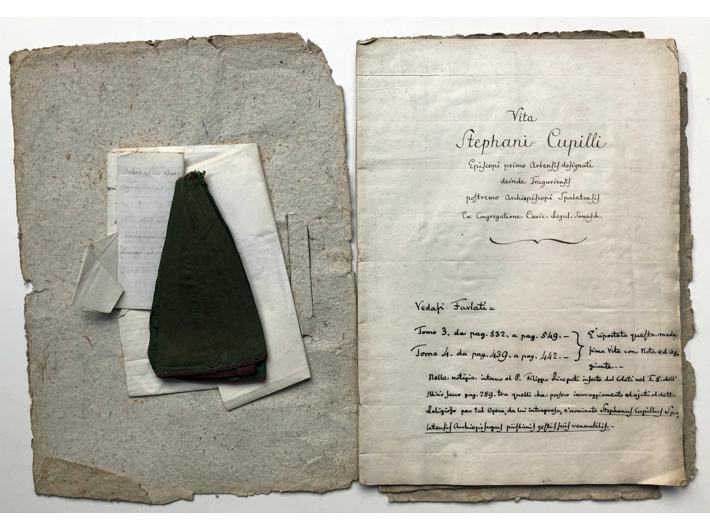 Vita
Stephani Cupilli
Episcopi primo Arbensis designati
deinde Traguriensis
postremo Archiepiscopi Spalatensis
Ex Congregatione Cleric. Regul. Somasch.
Vedasi Farlati =
Tomo 3. da pag. 532. a pag. 549. –
Tomo 4. da pag. 439. a pag. 442. –
E' riportata questa mede
sima Vita con Note, ed ag
giunte. –
Nelle notizie intorno al P. Filippo inserite dal nel T. 8. dell'
pag. 289. tra quelli che porsero incoraggiamento ed ajuti al dett.
Religioso per tal Opera, da lui intrapresa, è nominato Stephanus Cupillus Spa
latensis Archiepiscopus gestis suis venerabilis. –